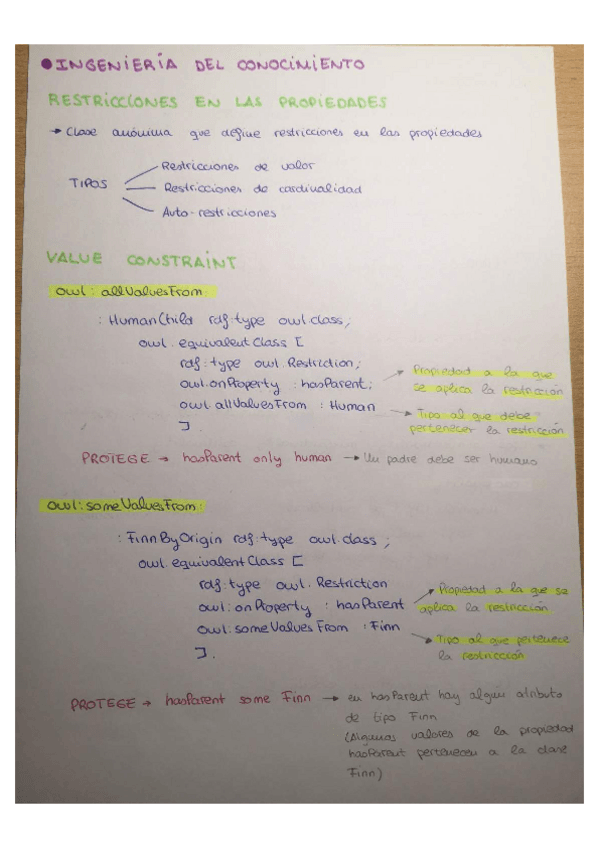 ● INGENIERÍA DEL CONOCIMIENTO
RESTRICCIONES EN LAS PROPIEDADES
→ Clase anónima que define restricciones en las propiedades
TIPOS
Restricciones de valor
Restricciones de cardinalidad
Auto-restricciones
VALUE CONSTRAINT
owl: allValuesFrom:
:HumanChild rdf:type owl:class;
owl:equivalentClass [
rdf:type owl:Restriction;
owl:onProperty :hasParent;
owl:allValuesFrom :Human
].
→ Propiedad a la que
se aplica la restricción
→ Tipo al que debe
pertenecer la restricción
PROTEGE → hasParent only human → Un padre debe ser humano
owl:someValuesFrom:
:FinnByOrigin rdf:type owl:class;
owl:equivalentClass [
rdf:type owl:Restriction
owl:onProperty :hasParent
owl:someValuesFrom :Finn
].
→ Propiedad a la que se
aplica la restricción
→ Tipo al que pertenece
la restricción
PROTEGE → hasParent some Finn → en hasParent hay algún atributo
de tipo Finn
(Algunas valores de la propiedad
hasParent pertenecen a la clase
Finn)